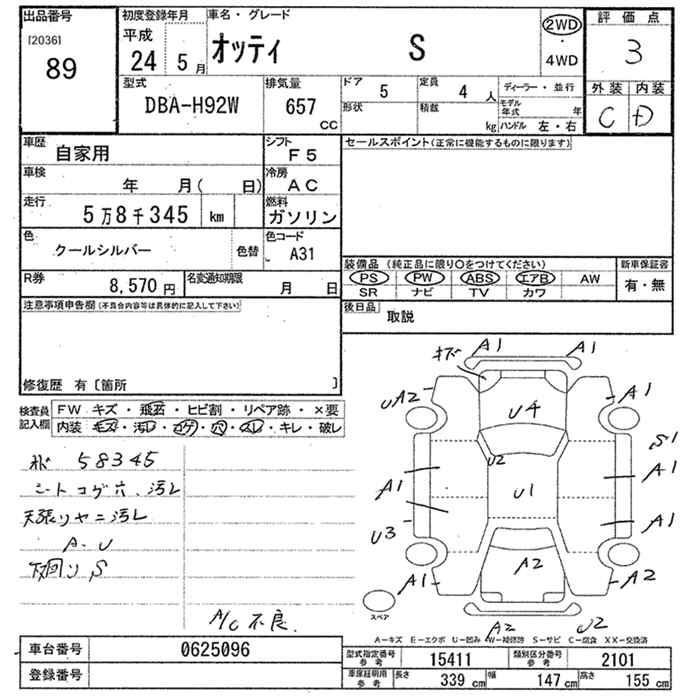 出品番号
[2036]
89
初度登録年月
平成
24 5月
車名・グレード
オッティ S
2WD
・
4WD
評価点
3
外装 内装
C D
型式
DBA-H92W
排気量
657
CC
ドア 5
定員 4人
形状
積載 kg
ディーラー・並行
モデル年式 年
ハンドル 左・右
車歴
自家用
シフト
F5
車検
年 月( 日)
冷房
AC
走行
5万8千345 km
燃料
ガソリン
色
クールシルバー
色替
色コード
A31
R券
8,570円
名変通知期限
月 日
セールスポイント(正常に機能するものに限ります)
装備品(純正品に限り○をつけてください)
新車保証書
PS PW ABS エアB AW
SR ナビ TV カワ
有・無
後日品
取説
注意事項申告欄(不具合内容等は具体的に記入して下さい)
修復歴 有〔箇所 〕
検査員記入欄
FW キズ・飛石・ヒビ割・リペア跡・×要
内装 キズ・汚レ・コゲ・穴・スレ・キレ・破レ
58345
シートコゲ穴、汚レ
天張りヤニ汚レ
A・U
下回りS
A/C不良
A1 A1
UA2 A1
U4
S1
U2
A1 U1 A1
A1
U3
A1 A2 A2
スペア
A2 U2
A-キズ E-エクボ U-凹み W-補修跡 S-サビ C-腐食 XX-交換済
車台番号
0625096
登録番号
型式指定番号
参考
15411
類別区分番号
参考
2101
車庫証明用
参考
長さ 339 cm
幅 147 cm
高さ 155 cm